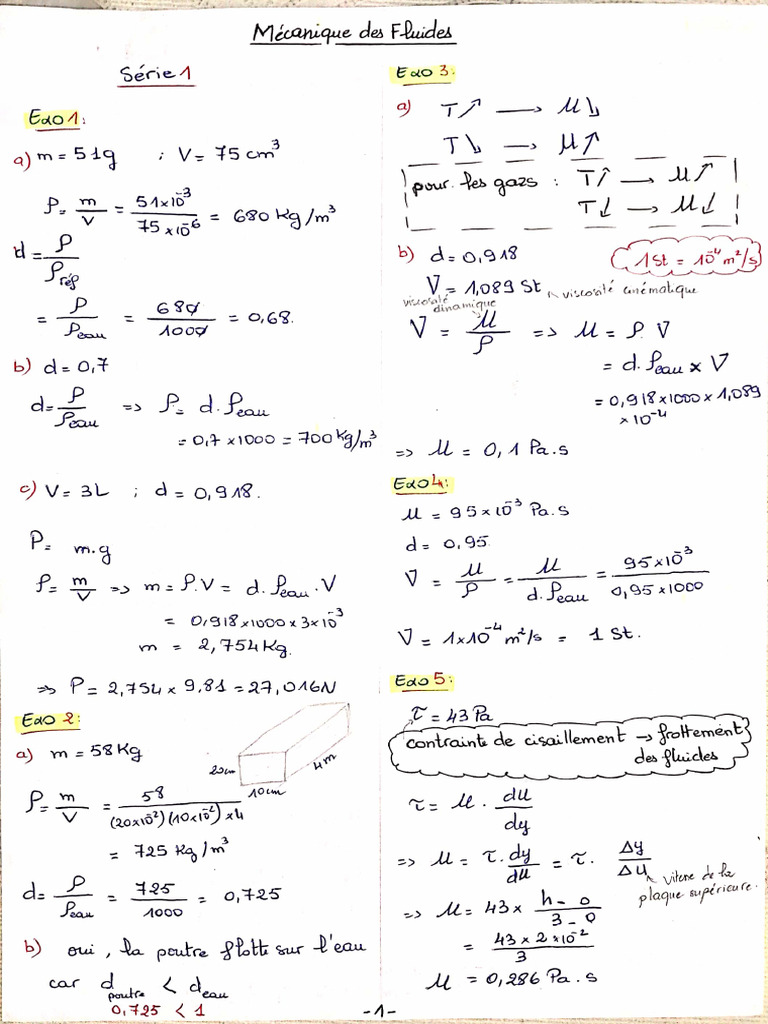 Mécanique des Fluides
Série 1
Exo 1:
a) m = 51g ; V = 75 cm³
ρ = m/V = 51×10⁻³/75×10⁻⁶ = 680 Kg/m³
d = ρ/ρréf
= ρ/ρeau = 680/1000 = 0,68.
b) d = 0,7
d = ρ/ρeau => ρ = d.ρeau
= 0,7 × 1000 = 700 Kg/m³
c) V = 3L ; d = 0,918.
P = m.g
ρ = m/V => m = ρ.V = d.ρeau.V
= 0,918×1000×3×10⁻³
m = 2,754 Kg.
=> P = 2,754 × 9.81 = 27,016N
Exo 2:
a) m = 58 Kg
20cm
10cm
4m
ρ = m/V = 58/(20×10⁻²)(10×10⁻²)×4
= 725 Kg/m³
d = ρ/ρeau = 725/1000 = 0,725
b) oui, la poutre flotte sur l'eau
car d poutre < d eau
0,725 < 1
Exo 3:
a) T↗ → μ↘
T↘ → μ↗
pour les gazs : T↑ → μ↗
T↓ → μ↓
b) d = 0,918
1 St = 10⁻⁴ m²/s
V = 1,089 St ↖ viscosité cinématique
viscosité dinamique
V = μ/ρ => μ = ρ.V
= d.ρeau × V
= 0,918×1000×1,089
×10⁻⁴
=> μ = 0,1 Pa.s
Exo 4:
μ = 95×10⁻³ Pa.s
d = 0,95
V = μ/ρ = μ/d.ρeau = 95×10⁻³/0,95×1000
V = 1×10⁻⁴ m²/s = 1 St.
Exo 5:
τ = 43 Pa
contrainte de cisaillement → frottement
des fluides
τ = μ . du/dy
=> μ = τ.dy/du = τ. Δy/Δu
vitesse de la
plaque supérieure.
=> μ = 43× h-0/3-0
= 43×2×10⁻²/3
μ = 0,286 Pa.s
-1-